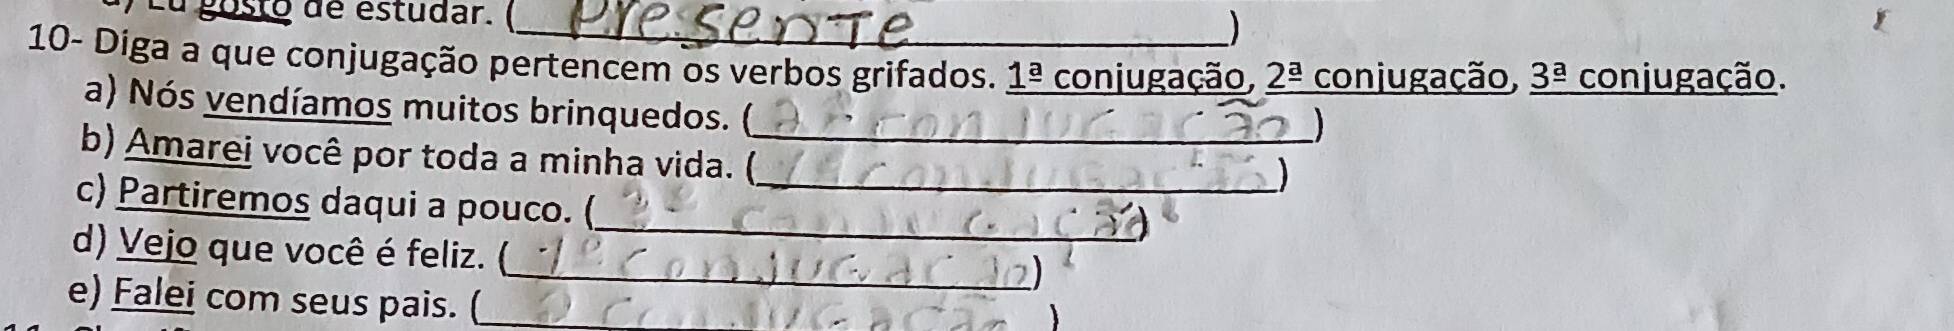 Eu gosto de estudar. (presente)
10- Diga a que conjugação pertencem os verbos grifados. 1ª conjugação, 2ª conjugação, 3ª conjugação.
a) Nós vendíamos muitos brinquedos. (2ª conjugação)
b) Amarei você por toda a minha vida. (1ª conjugação)
c) Partiremos daqui a pouco. (3ª conjugação)
d) Vejo que você é feliz. (1ª conjugação)
e) Falei com seus pais. ( conjugação)